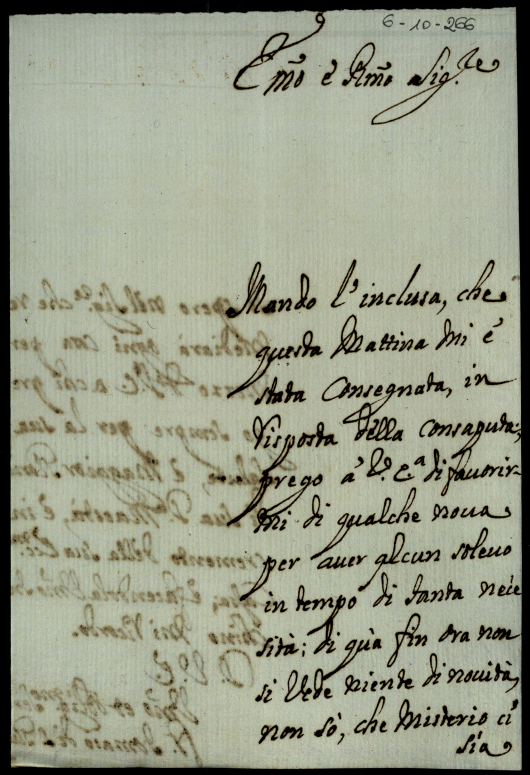 6-10-266
Em̃o è Rm̃o Sig.re
Mando l'inclusa, che
questa Mattina mi è
stata Consegnata, in
risposta della consaputa;
prego à V. E.a di favorir-
mi di qualche nova
per aver alcun solevo
in tempo di tanta nece
sità; di quà fin ora non
si Vede niente di novità,
non sò, che Misterio ci
sia